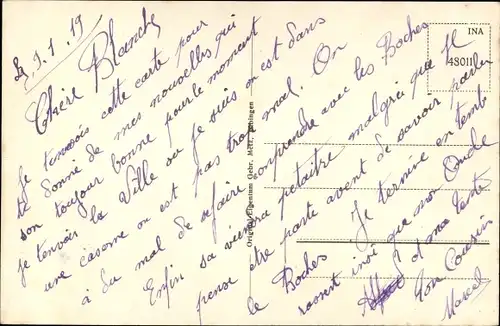 Le 9.1.19
Chère Blanche
Je t'envois cette carte pour
te donné de mes nouvelles qui
son toujour bonne pour le moment
je t'envoi la Ville ou je suis on est dans
une caserne on est pas trop mal. On
à du mal de se faire comprendre avec les Boches
Enfin sa viendra petaitre malgrés que je
pense être parte avent de savoir parler
le Boches Je termine en temb
rassent insi que mon Oncle
Alfred et ma tente
Ton Cousin
Marcel
INA
48011
Orig. u. Eigentum Gebr. Metz, Tübingen